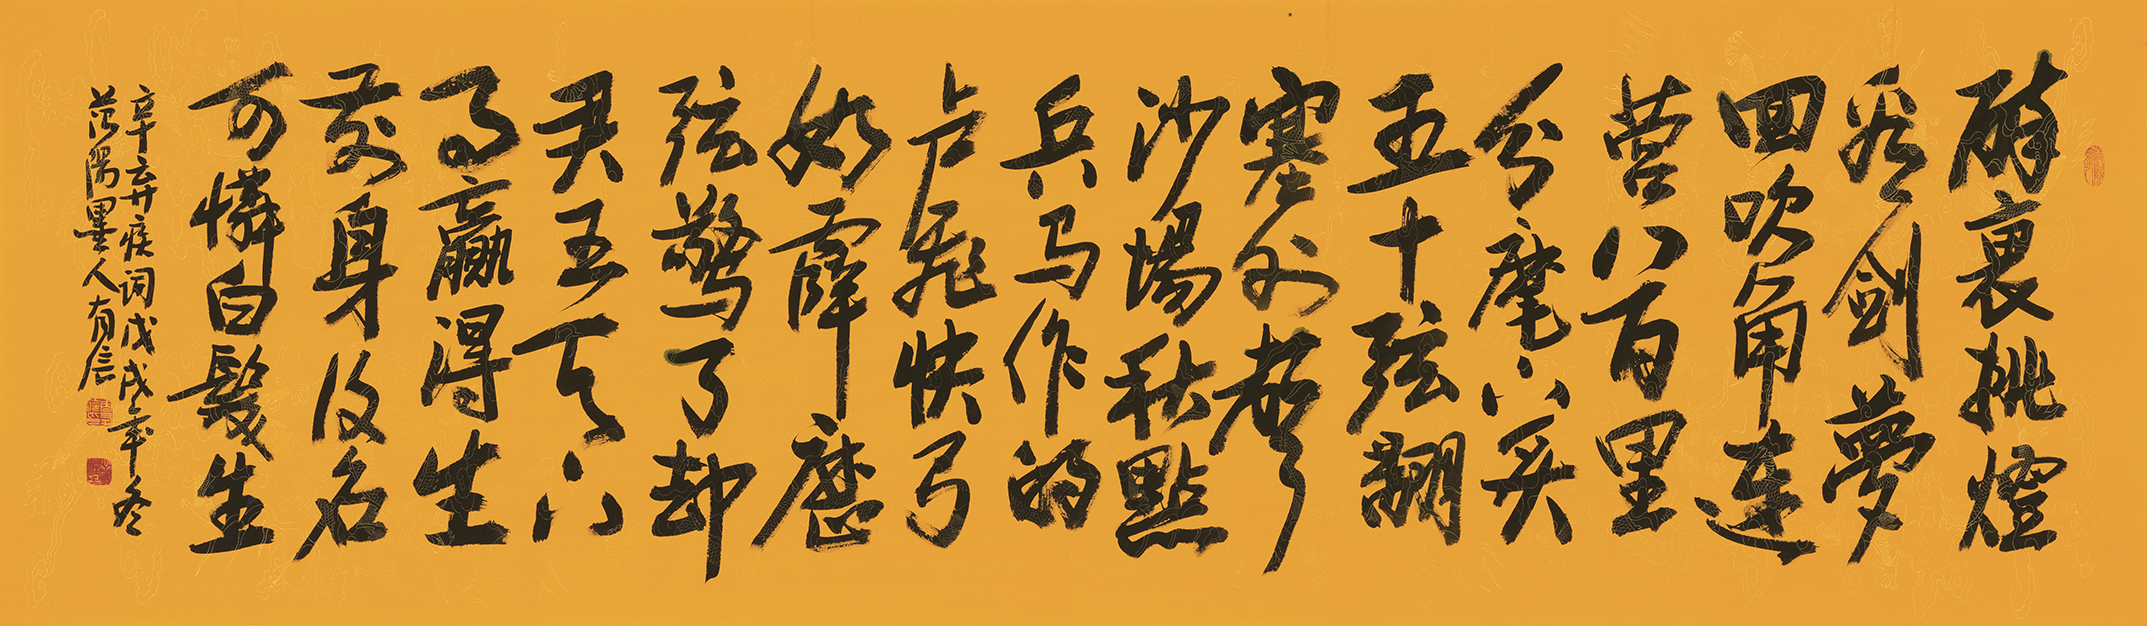 醉裏挑燈
看劍夢
回吹角連
營八百里
分麾下炙
五十弦翻
塞外聲
沙場秋點
兵马作的
卢飛快弓
如霹靂
弦驚了却
君王天下
事贏得生
前身後名
可憐白髮生
辛弃疾词戊戌年冬
墨人有信